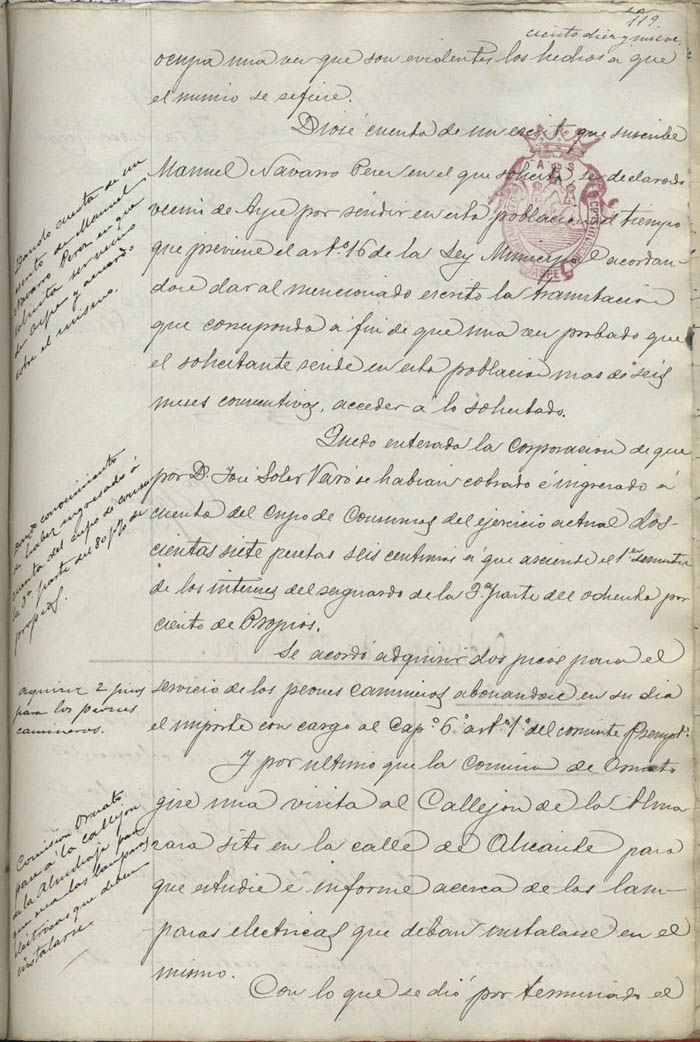 119
ciento diez y nueve.
ocupa una vez que son evidentes los hechos a que
el mismo se refiere.
Diose cuenta de un escrito que suscribe
Manuel Navarro Perez en el que solicita se declarado
vecino de Aspe por residir en esta poblacion el tiempo
que previene el artº 16 de la Ley Municipal acordan-
dose dar al mencionado escrito la tramitacion
que corresponda á fin de que una vez probado que
el solicitante reside en esta poblacion mas de seis
meses consecutivos, acceder á lo solicitado.
Quedó enterada la Corporacion de que
por D. José Soler Varó se habian cobrado é ingresado á
cuenta del Cupo de Consumos del ejercicio actual dos-
cientas siete pesetas seis centimos á que asciende el 1er semestre
de los intereses del resguardo de la 3ª parte del ochenta por
ciento de Propios.
Se acordó adquirir dos picos para el
servicio de los peones camineros abonandose en su dia
el importe con cargo al Capº 6º artº 1º del corriente Presuptº
Y por ultimo que la Comision de Ornato
gire una visita al Callejon de la Alma
zara sito en la calle de Alicante para
que estudie é informe acerca de las lam-
paras electricas que deban instalarse en el
mismo.
Con lo que se dió por terminado el
Dando cuenta de un
escrito de Manuel
Navarro Perez en que
solicita ser vecino
de Aspe y acuerdo
sobre el mismo.
conocimiento
de haber ingresado á
cuenta del cupo de consumos
la 3ª parte del 80 p% de
propios.
aquirir 2 picos
para los peones
camineros.
Comision Ornato
para á la callejon
de la Almazara para
que vea las lamparas
electricas que deben
instalarse.
ASPE